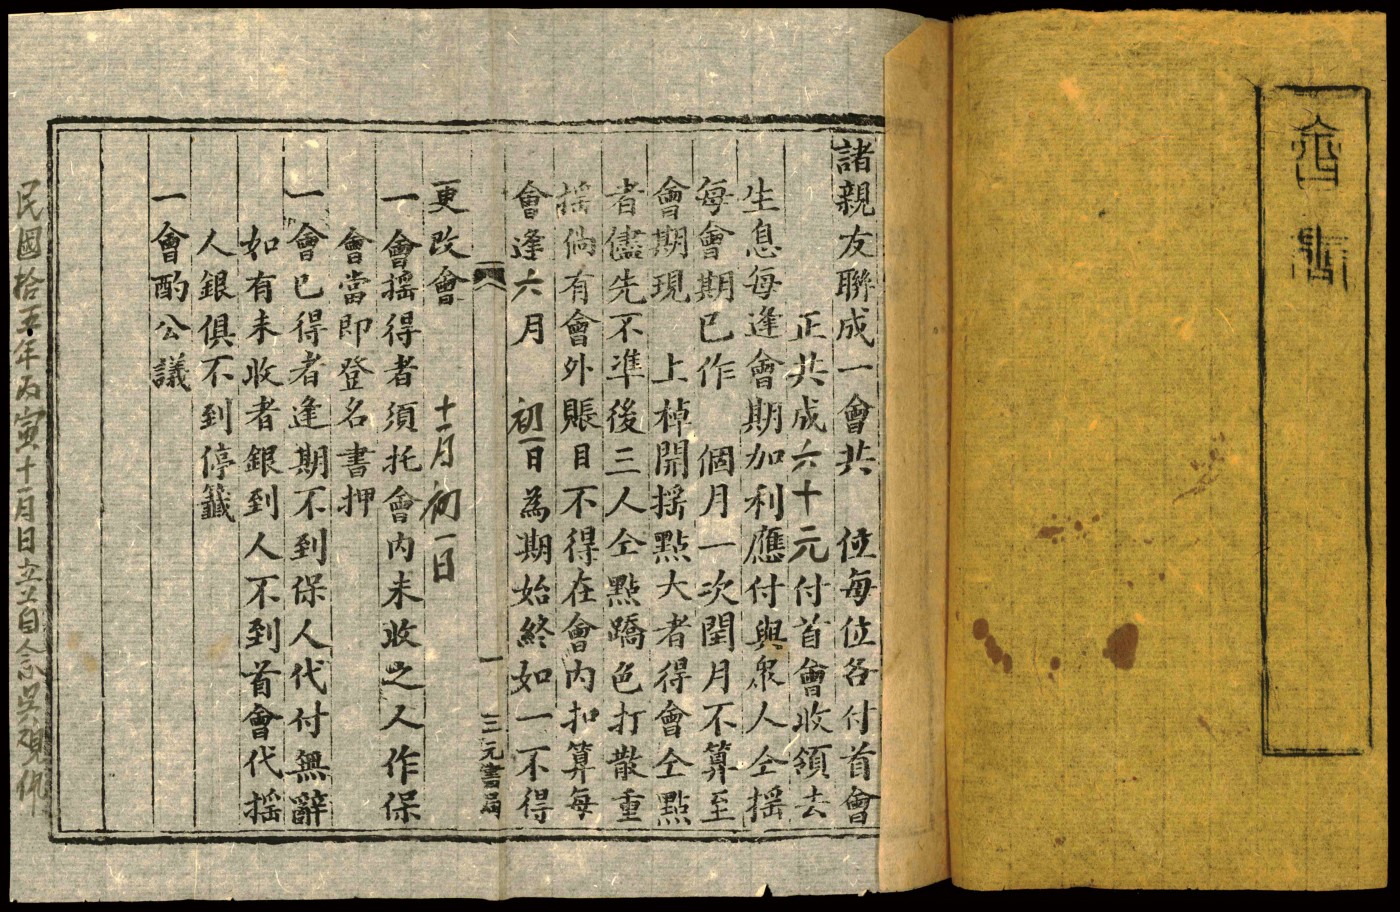 會
諸親友聯成一會共 位每位各付首會
正共成六十元付首會收領去
生息每逢會期加利應付與眾人仝搖
每會期已作 個月一次閏月不算至
會期現 上棹開搖點大者得會仝點
者儘先不準後三人仝點蹻色打散重
搖倘有會外賬目不得在會內扣算每
會逢六月 初一日為期始終如一不得
一 三元書局
更改會 十一月初一日
一會搖得者須托會內未收之人作保
會當即登名書押
一會已得者逢期不到保人代付無辭
如有未收者銀到人不到首會代搖
人銀俱不到停籤
一會酌公議
民國拾五年丙寅十一月日立